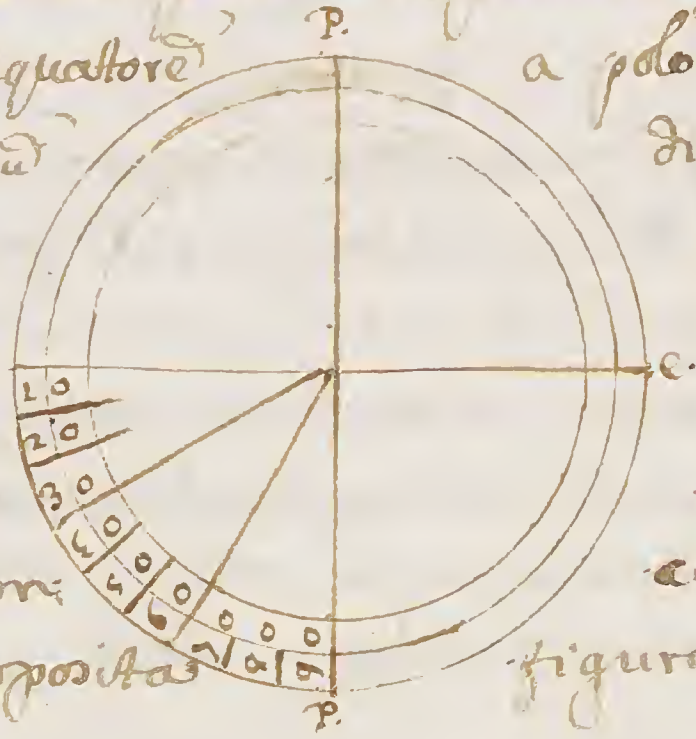 P.
quattore a polo
di
C.
10
20
30
40
50
60
70
80
90
posita figura
P.